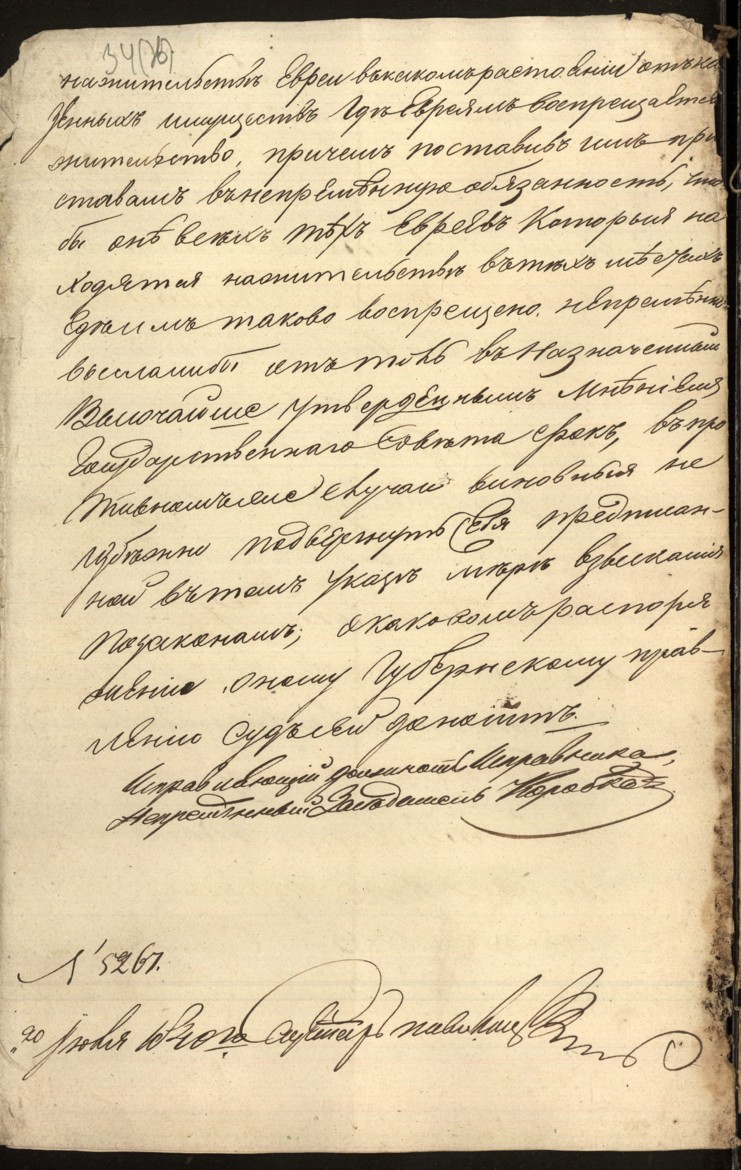 34(об)
на жительстве Евреи в какомъ растоянии отъ ка
зенныхъ имуществъ где Евреямъ воспрещается
жительство, причемъ поставивъ имъ при
ставамъ въ непременную обязанность, что
бы оне всехъ техъ Евреевъ которыя на
ходятся на жительстве въ техъ местахъ
где имъ таково воспрещено. непременно
выслалибы отъ толь въ назначенный
Высочайше утвержденнымъ мненіемъ
Государственнаго Совета срокъ, въ про
тивномъ же случаи виновныя не
избежно подвергнутъ себя предписан-
ной въ томъ указе мере взысканія
по законамъ; о какомъ распоря
жение оному Губернскому прав-
лению Судъ сей доноситъ.
Исправляющий должность Исправника,
Непременный Заседатель Коробка
№ 5267.
"20 Іюля 1840 го